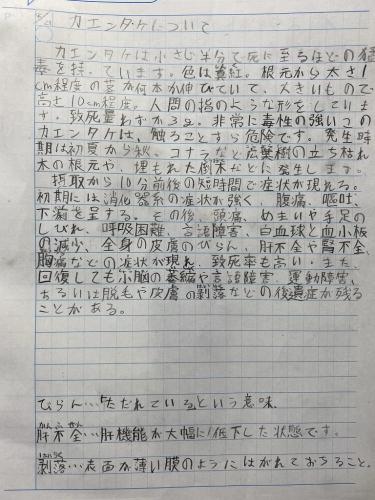 5/21
カエンタケについて
カエンタケは小さじ半分で死に至るほどの猛
毒を持っています。色は真紅。根元から太さ1
cm程度の茎が何本か伸びていて、大きいもので
高さ10cm程度。人間の指のような形をしていま
す。致死量わずか3g。非常に毒性の強いこの
カエンタケは、触ることすら危険です。発生時
期は初夏から秋。コナラなど広葉樹の立ち枯れ
木の根元や、埋もれた倒木などに発生します。
摂取から10分前後の短時間で症状が現れる。
初期には消化器系の症状が強く、腹痛、嘔吐、
下痢を呈する。その後、頭痛、めまいや手足の
しびれ、呼吸困難、言語障害、白血球と血小板
の減少、全身の皮膚のびらん、肝不全や腎不全、
胸痛などの症状が現れ、致死率も高い。また、
回復しても小脳の萎縮や言語障害、運動障害、
あるいは脱毛や皮膚の剥落などの後遺症が残る
ことがある。
びらん…「ただれている」という意味。
肝不全…肝機能が大幅に低下した状態です。
はくらく
剥落…表面が薄い膜のようにはがれておちること。